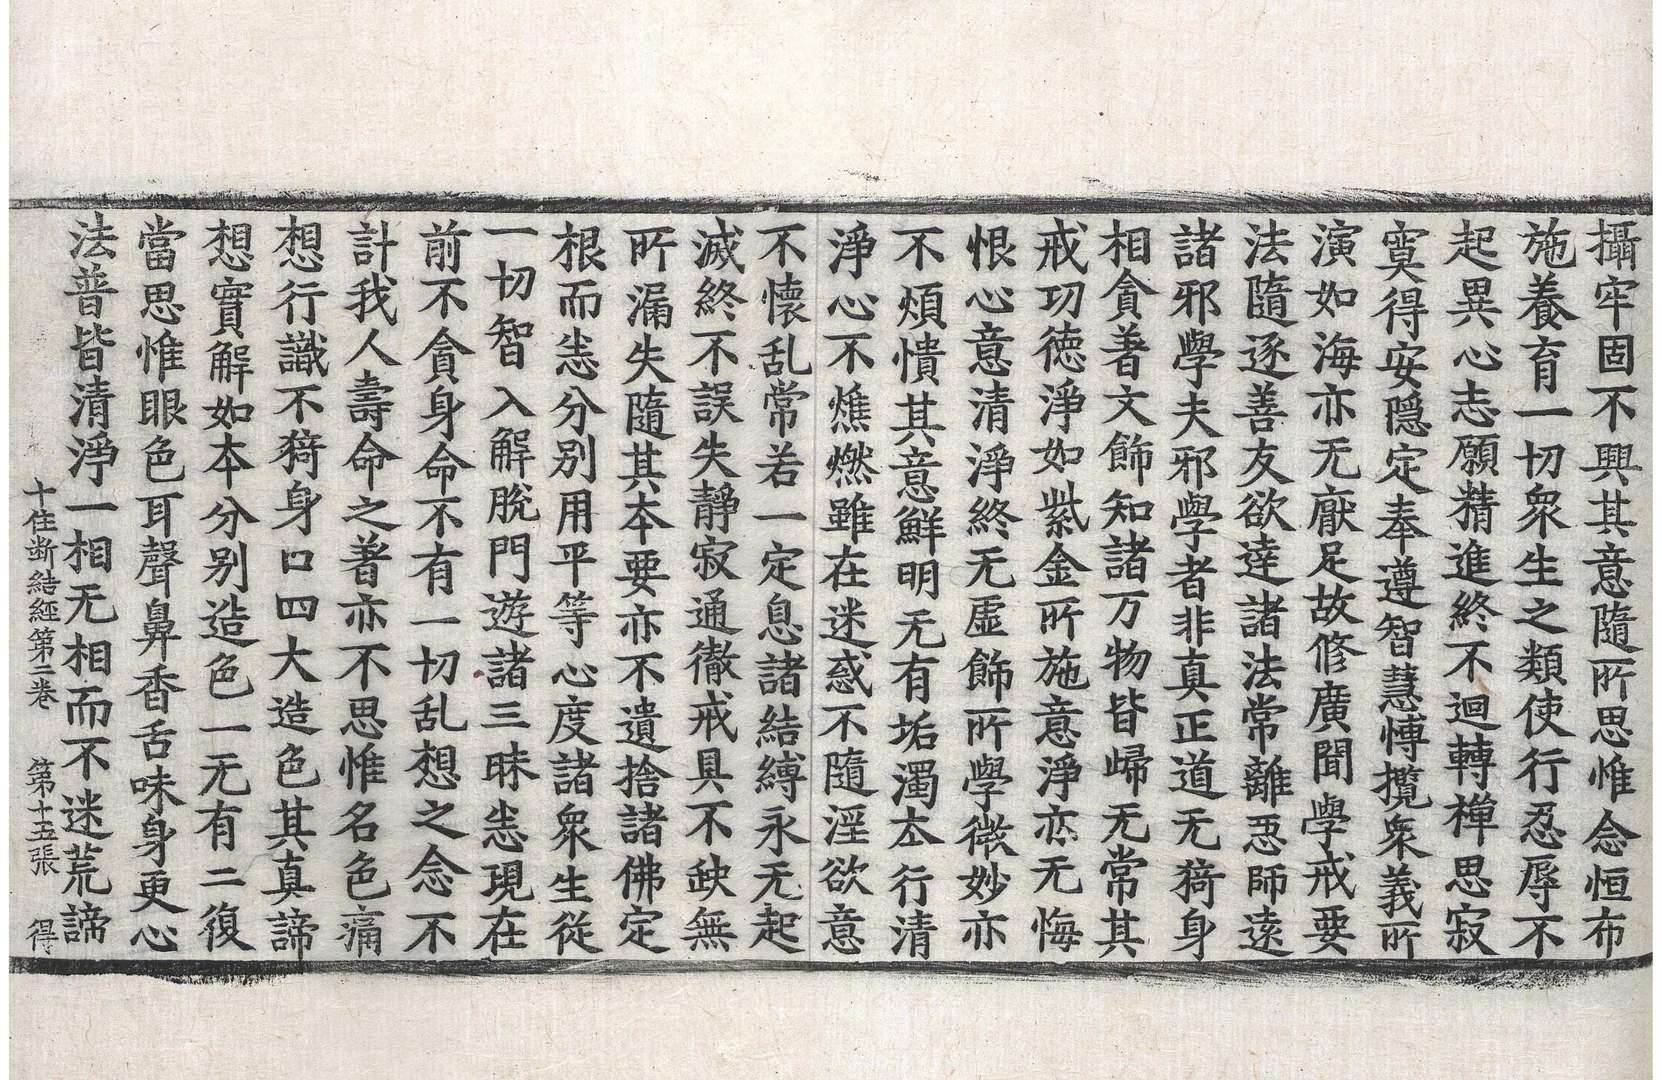 攝牢固不興其意隨所思惟念恒布
施養育一切衆生之類使行忍辱不
起異心志願精進終不迴轉禅思寂
寞得安隱定奉遵智慧愽攬衆義所
演如海亦无厭足故修廣聞學戒要
法隨逐善友欲逹諸法常離惡師遠
諸邪學夫邪學者非真正道无猗身
相貪著文飾知諸万物皆歸无常其
戒功德淨如紫金所施意淨亦无悔
恨心意清淨終无虛飾所學微妙亦
不煩憒其意鮮明无有垢濁本行清
淨心不燋燃雖在迷惑不隨淫欲意
不懷乱常若一定息諸結縛永无起
滅終不誤失靜寂通徹戒具不缺無
所漏失隨其本要亦不遺捨諸佛定
根而悉分别用平等心度諸衆生從
一切智入解脫門遊諸三昧悉現在
前不貪身命不有一切乱想之念不
計我人壽命之著亦不思惟名色痛
想行識不猗身口四大造色其真諦
想實解如本分别造色一无有二復
當思惟眼色耳聲鼻香舌味身更心
法普皆清淨一相无相而不迷荒諦
十住断結經第二卷 第十五張 得